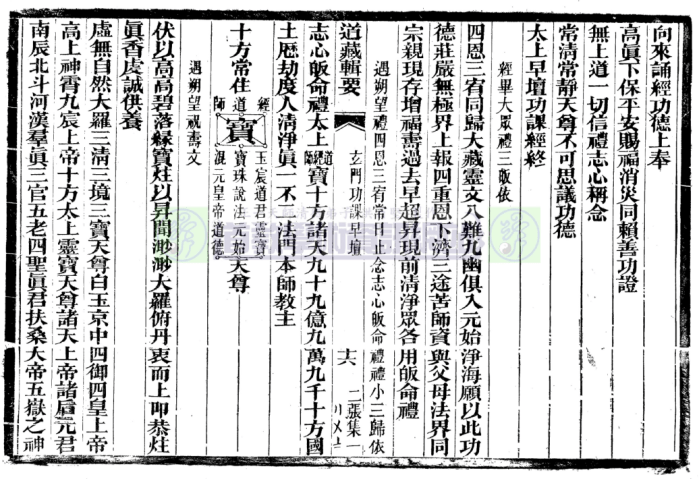 向來誦經功德上奉
高眞下保平安賜福消災同賴善功證
無上道一切信禮志心稱念
常清常靜天尊不可思議功德
太上早壇功課經終
經畢大眾禮三皈依
四恩三宥同歸大藏靈文八難九幽俱入元始淨海願以此功
德莊嚴無極界上報四重恩下濟三途苦師資與父母法界同
宗親現存增福壽過去早超昇現前清淨眾各用皈命禮
遇朔望禮四恩三宥常日止念志心皈命禮禮小三歸依
道藏輯要
玄門功課早壇
十六
二張集一
志心皈命禮太上道經師寶十方諸天九十九億九萬九千十方國
土歷劫度人清淨眞一不二法門本師教主
十方常住道經師寶玉宸道君靈寶寶珠說法元始混元皇帝道德天尊
遇朔望祝壽文
伏以高高碧落緣寶炷以昇聞渺渺大羅俯丹衷而上叩恭炷
眞香虔誠供養
虛無自然大羅三清三境三寶天尊白玉京中四御四皇上帝
高上神霄九宸上帝十方太上靈寶天尊諸天上帝諸后元君
南辰北斗河漢羣眞三官五老四聖眞君扶桑大帝五嶽之神